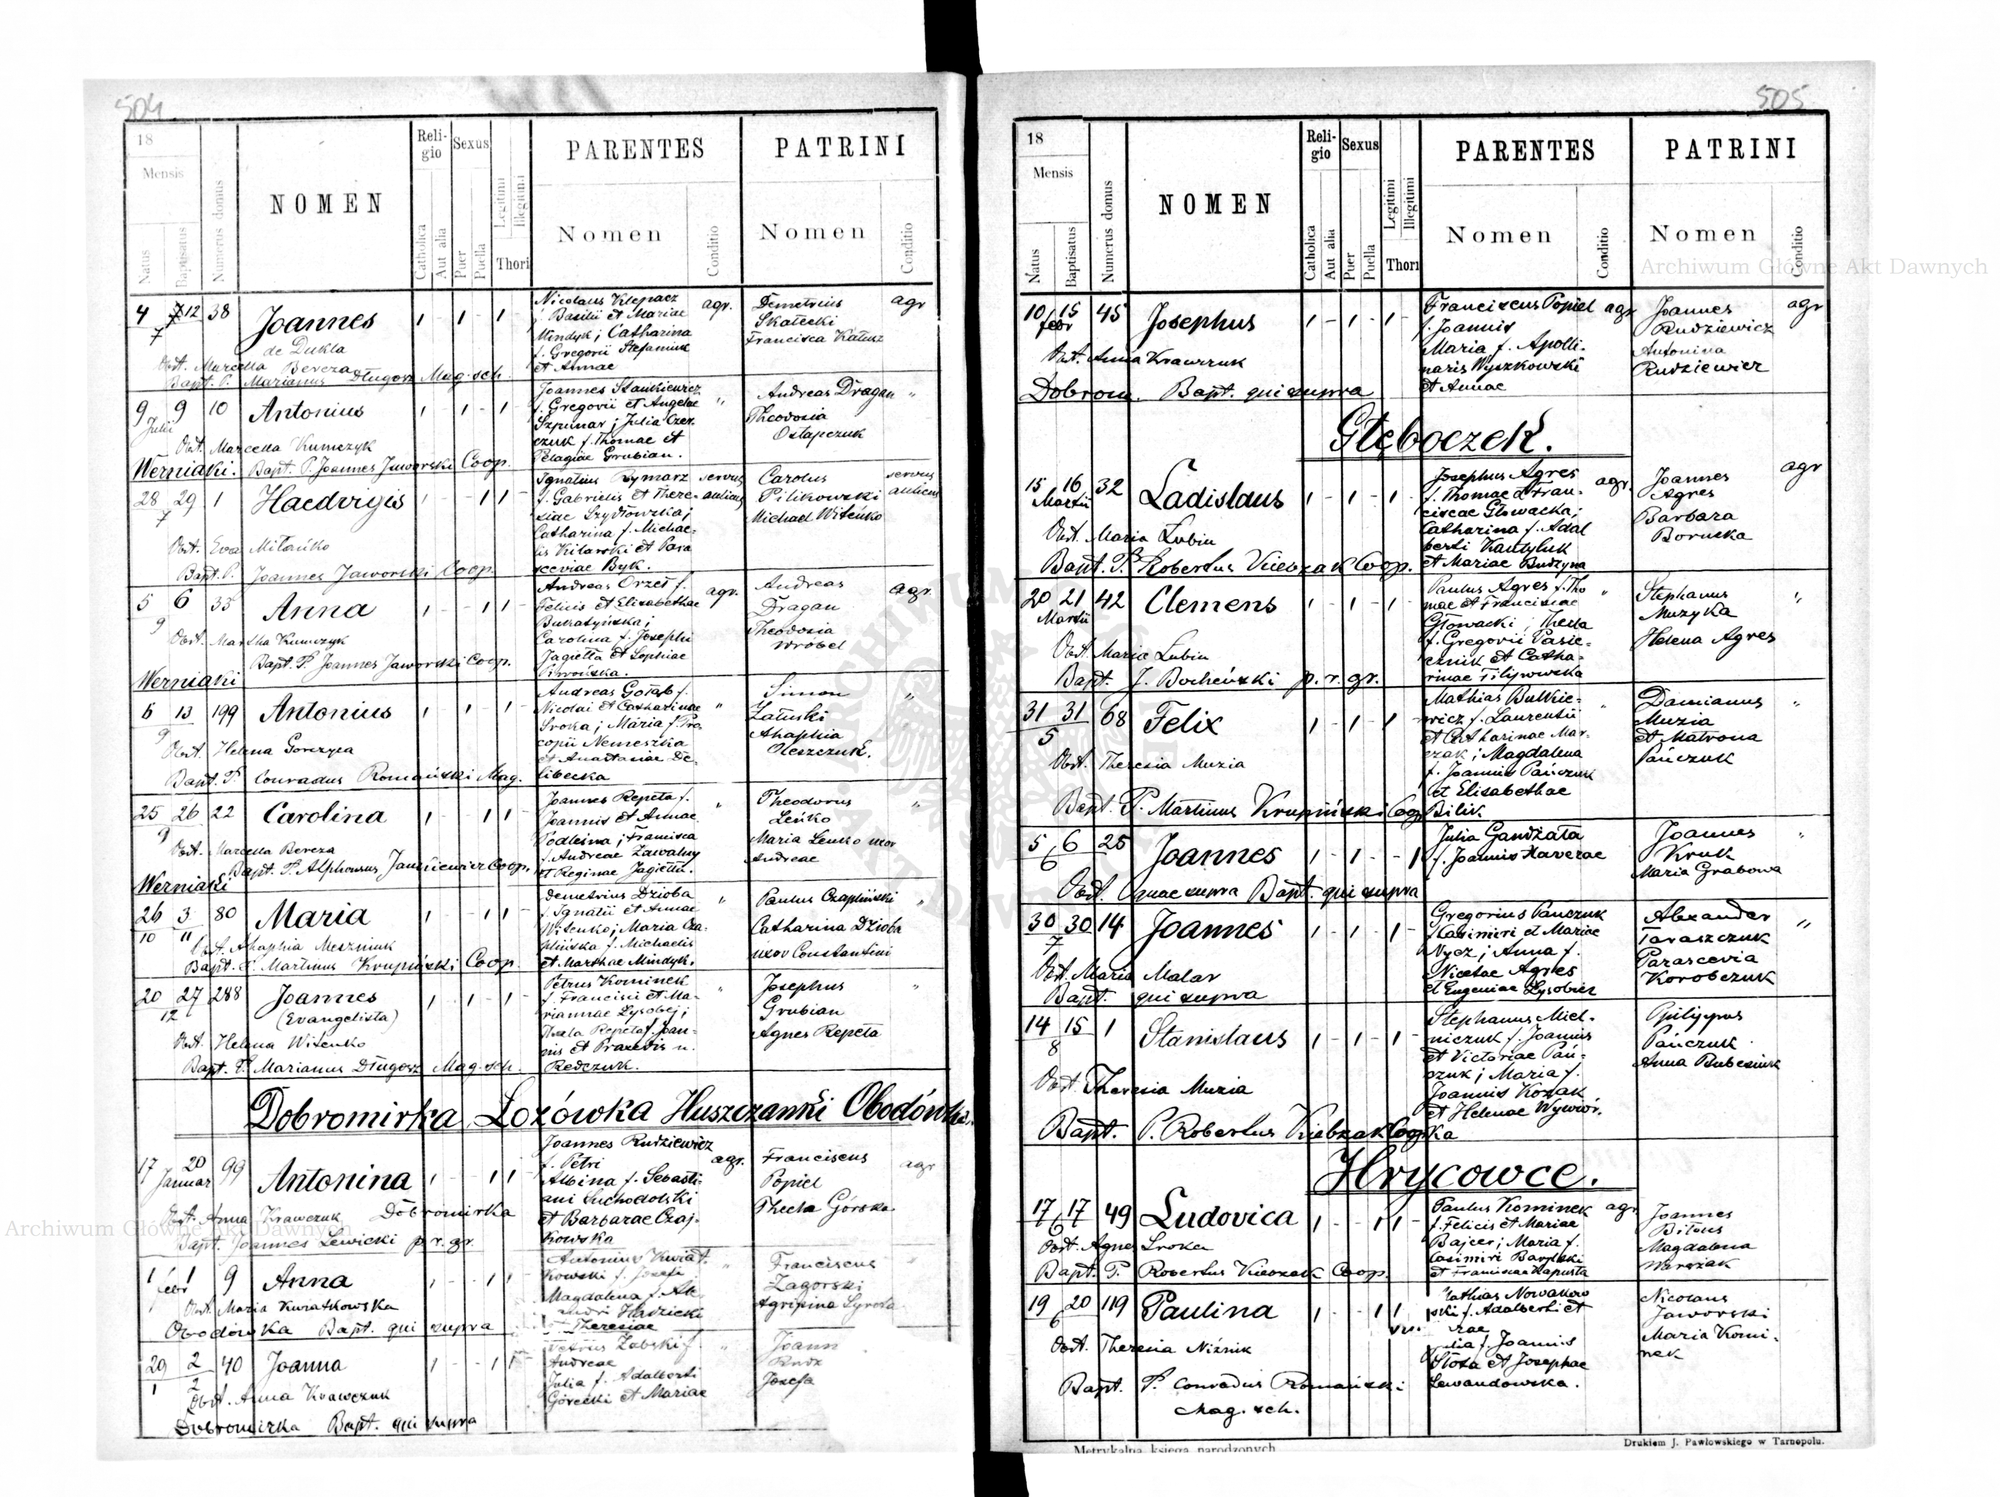 504
18
Mensis
Natus
Baptisatus
Numerus domus
NOMEN
Religio
Catholica
Aut alia
Sexus
Puer
Puella
Legitimi
Illegitimi
Thori
PARENTES
Nomen
Conditio
PATRINI
Nomen
Conditio
4 12 38 Joannes
7
de Dukla
Obst. Marcella Bereza
Bapt. P. Marianus Długosz Mag. sch.
Nicolaus Klepacz agr.
f. Basilii et Mariae
Mindyk; Catharina
f. Gregorii Stefaniuk
et Annae
Demetrius agr
Skałecki
Francisca Kałusz
9 9 10 Antonius
Julii
Obst. Marcella Kumczyk
Werniaki. Bapt. P. Joannes Jaworski Coop.
Joannes Stankiewicz "
f. Gregorii et Angelae
Szpunar; Julia Czer-
czuk f. Thomae et
Pelagiae Grubian.
Andreas Dragan "
Theodosia
Ostapczuk
28 29 1 Haedvigis
7
Obst. Eva Milańko
Bapt. P. Joannes Jaworski Coop.
Ignatius Rymarz servus
f. Gabrielis et There- aulicus
siae Szydłowska;
Catharina f. Michae-
lis Kilarski et Para
sceviae Byk.
Carolus servus
Pilikowski aulicus
Michael Witeńko
5 6 35 Anna
9
Obst. Martha Kumczyk
Bapt. P. Joannes Jaworski Coop.
Werniaki
Andreas Orzeł f.
Felicis et Elisabethae agr.
Bukatyńska;
Carolina f. Josephi
Jagiełła et Sophiae
Piwońska.
Andreas agr.
Dragan
Theodosia
Wróbel
6 13 199 Antonius
9
Obst. Helena Gorczyca
Bapt. P. Conradus Romański Mag.
Andreas Gołąb f.
Nicolai et Catharinae "
Sroka; Maria f. Pro
copii Nemeszka
et Anastasiae De-
libecka
Simon "
Załuski
Ahaphia
Oleszczuk.
25 26 22 Carolina
9
Obst. Marcella Bereza
Bapt. P. Alphonsus Janusiewicz Coop.
Werniaki
Joannes Repeta f. "
Joannis et Annae
Podleśna; Francisca
f. Andreae Zawalny
et Reginae Jagiełła.
Theodorus "
Leńko
Maria Lenko uxor
Andreae
26 3 80 Maria
10 11
Obst. Ahaphia Meszniuk
Bapt. P. Martinus Krupiński Coop.
Demetrius Dzioba "
f. Ignatii et Annae
Witenko; Maria Cza-
plińska f. Michaelis
et Marthae Mindyk.
Paulus Czapliński "
Catharina Dzioba
uxor Constantini
20 27 288 Joannes
12 (Evangelista)
Obst. Helena Witenko
Bapt. P. Marianus Długosz Mag. sch.
Petrus Kominek "
f. Francisci et Ma-
riannae Lysobej;
Thecla Repeta f. Joan-
nis et Praxedis n.
Redczuk.
Josephus "
Grubian
Agnes Repeta
Dobromirka Lozówka Huszczanki Obodówka.
17 20 99 Antonina
Januar
Obst. Anna Krawczuk Dobromirka
Bapt. Joannes Lewicki p. r. gr.
Joannes Rudziewicz
f. Petri agr.
Albina f. Sebasti-
ani Suchodolski
et Barbarae Czaj-
kowska
Franciscus agr
Popiel
Thecla Górska
1 1 9 Anna
febr
Obst. Maria Kwiatkowska
Obodówka Bapt. qui supra
Antonius Kwiat- "
kowski f. Josefi
Magdalena f. Ale
Theresiae
Franciscus "
Zagorski
Agripina Syrota
29 2 40 Joanna
1 2
Obst. Anna Krawczuk
Dobromirka Bapt. qui supra
Petrus Zabski f.
Andreae
Julia f. Adalberti
Górecki et Mariae
Joann
Rudz
Josefa
505
18
Mensis
Natus
Baptisatus
Numerus domus
NOMEN
Religio
Catholica
Aut alia
Sexus
Puer
Puella
Legitimi
Illegitimi
Thori
PARENTES
Nomen
Conditio
PATRINI
Nomen
Conditio
10 15 45 Josephus
febr
Obst. Anna Krawczuk
Dobrom. Bapt. qui supra
Franciscus Popiel agr
f. Joannis
Maria f. Apolli-
naris Wyszkowski
et Annae
Joannes agr
Rudziewicz
Antonina
Rudziewicz
Głęboczek.
15 16 32 Ladislaus
Martii
Obst. Maria Lubin
Bapt. P. Robertus Kiebzak Coop.
Josephus Agres agr.
f. Thomae et Fran-
ciscae Głowacka;
Catharina f. Adal
berti Kantyluk
et Mariae Budzyna
Joannes agr
Agres
Barbara
Boruska
20 21 42 Clemens
Martii
Obst. Maria Lubin
Bapt. J. Bocheński p. r. gr.
Paulus Agres f. Tho "
mae et Franciscae
Głowacki; Thecla
f. Gregorii Pasie-
cznik et Catha-
rinae Filipowska
Stephanus "
Muzyka
Helena Agres
31 31 68 Felix
5
Obst. Theresia Muzia
Bapt. P. Martinus Krupiński Coop
Mathias Butkie- "
wicz f. Laurentii
et Catharinae Mar-
czak; Magdalena
f. Joannis Pańczuk
et Elisabethae
Bilik.
Damianus "
Muzia
et Matrona
Pańczuk
5 6 25 Joannes
6
Obst. quae supra Bapt. qui supra
Julia Gandżała
f. Joannis Xaverae
Joannes "
Kruk
Maria Grabowa
30 30 14 Joannes
7
Obst. Maria Malar
Bapt. qui supra
Gregorius Panczuk
f. Casimiri et Mariae
Nycz; Anna f.
Nicetae Agres
et Eugeniae Lysobier
Alexander "
Taraszczuk
Parascevia
Korobczuk
14 15 1 Stanislaus
8
Obst. Theresia Muzia
Bapt. P. Robertus Kiebzak Coop
Stephanus Miel-
niczuk f. Joannis
et Victoriae Pań-
czuk; Maria f.
Joannis Kozak
et Helenae Wywiór-
ka
Philippus
Pańczuk
Anna Bubeniuk
Hrycowce.
17 17 49 Ludovica
6
Obst. Agnes Sroka
Bapt. P. Robertus Kiebzak Coop.
Paulus Kominek agr
f. Felicis et Mariae
Bajcer; Maria f.
Casimiri Barylski
et Franciscae Kapusta
Joannes
Bitous
Magdalena
Warczak
19 20 119 Paulina
6
Obst. Theresia Niźnik
Bapt. P. Conradus Romański
Mag. sch.
Mathias Nowakow
ski f. Adalberti et
rae
Julia f. Joannis
Słota et Josephae
Lewandowska.
Nicolaus
Jaworski
Maria Komi-
nek
Metrykalna księga narodzonych
Drukiem J. Pawłowskiego w Tarnopolu.
Archiwum Główne Akt Dawnych
Archiwum Główne Akt Dawnych